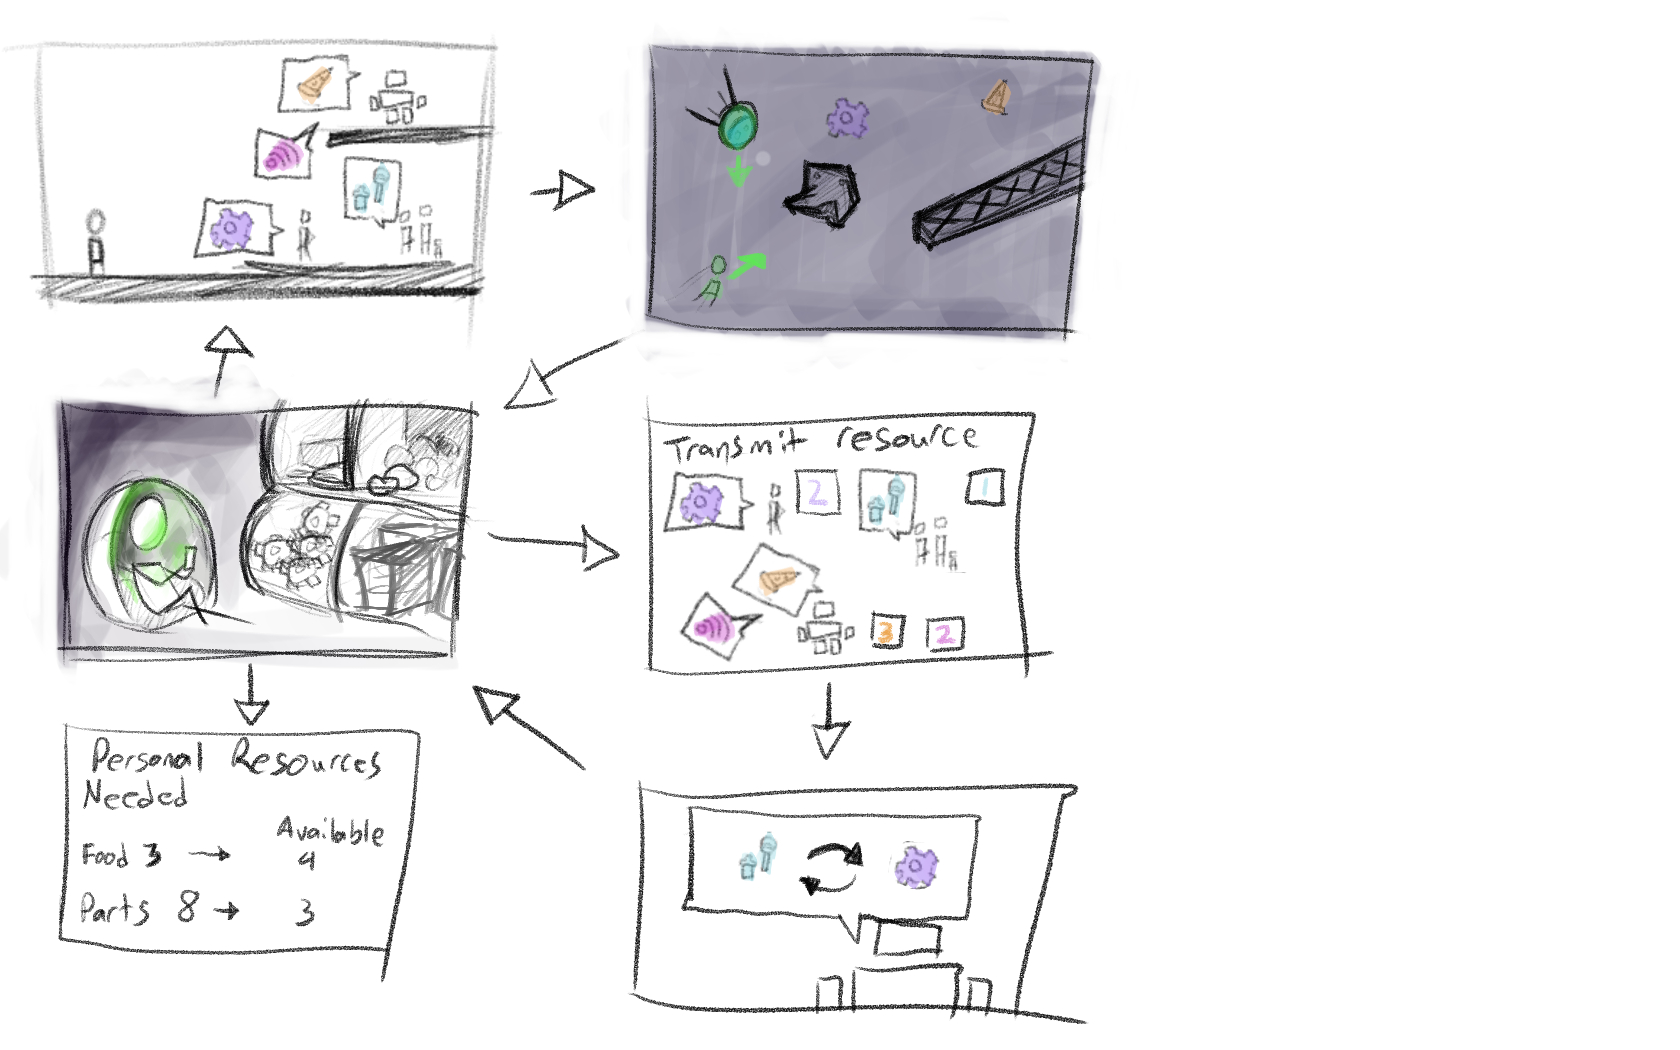 Transmit resource
2
1
3 2
Personal Resources
Needed
Available
Food 3 → 4
Parts 8 → 3